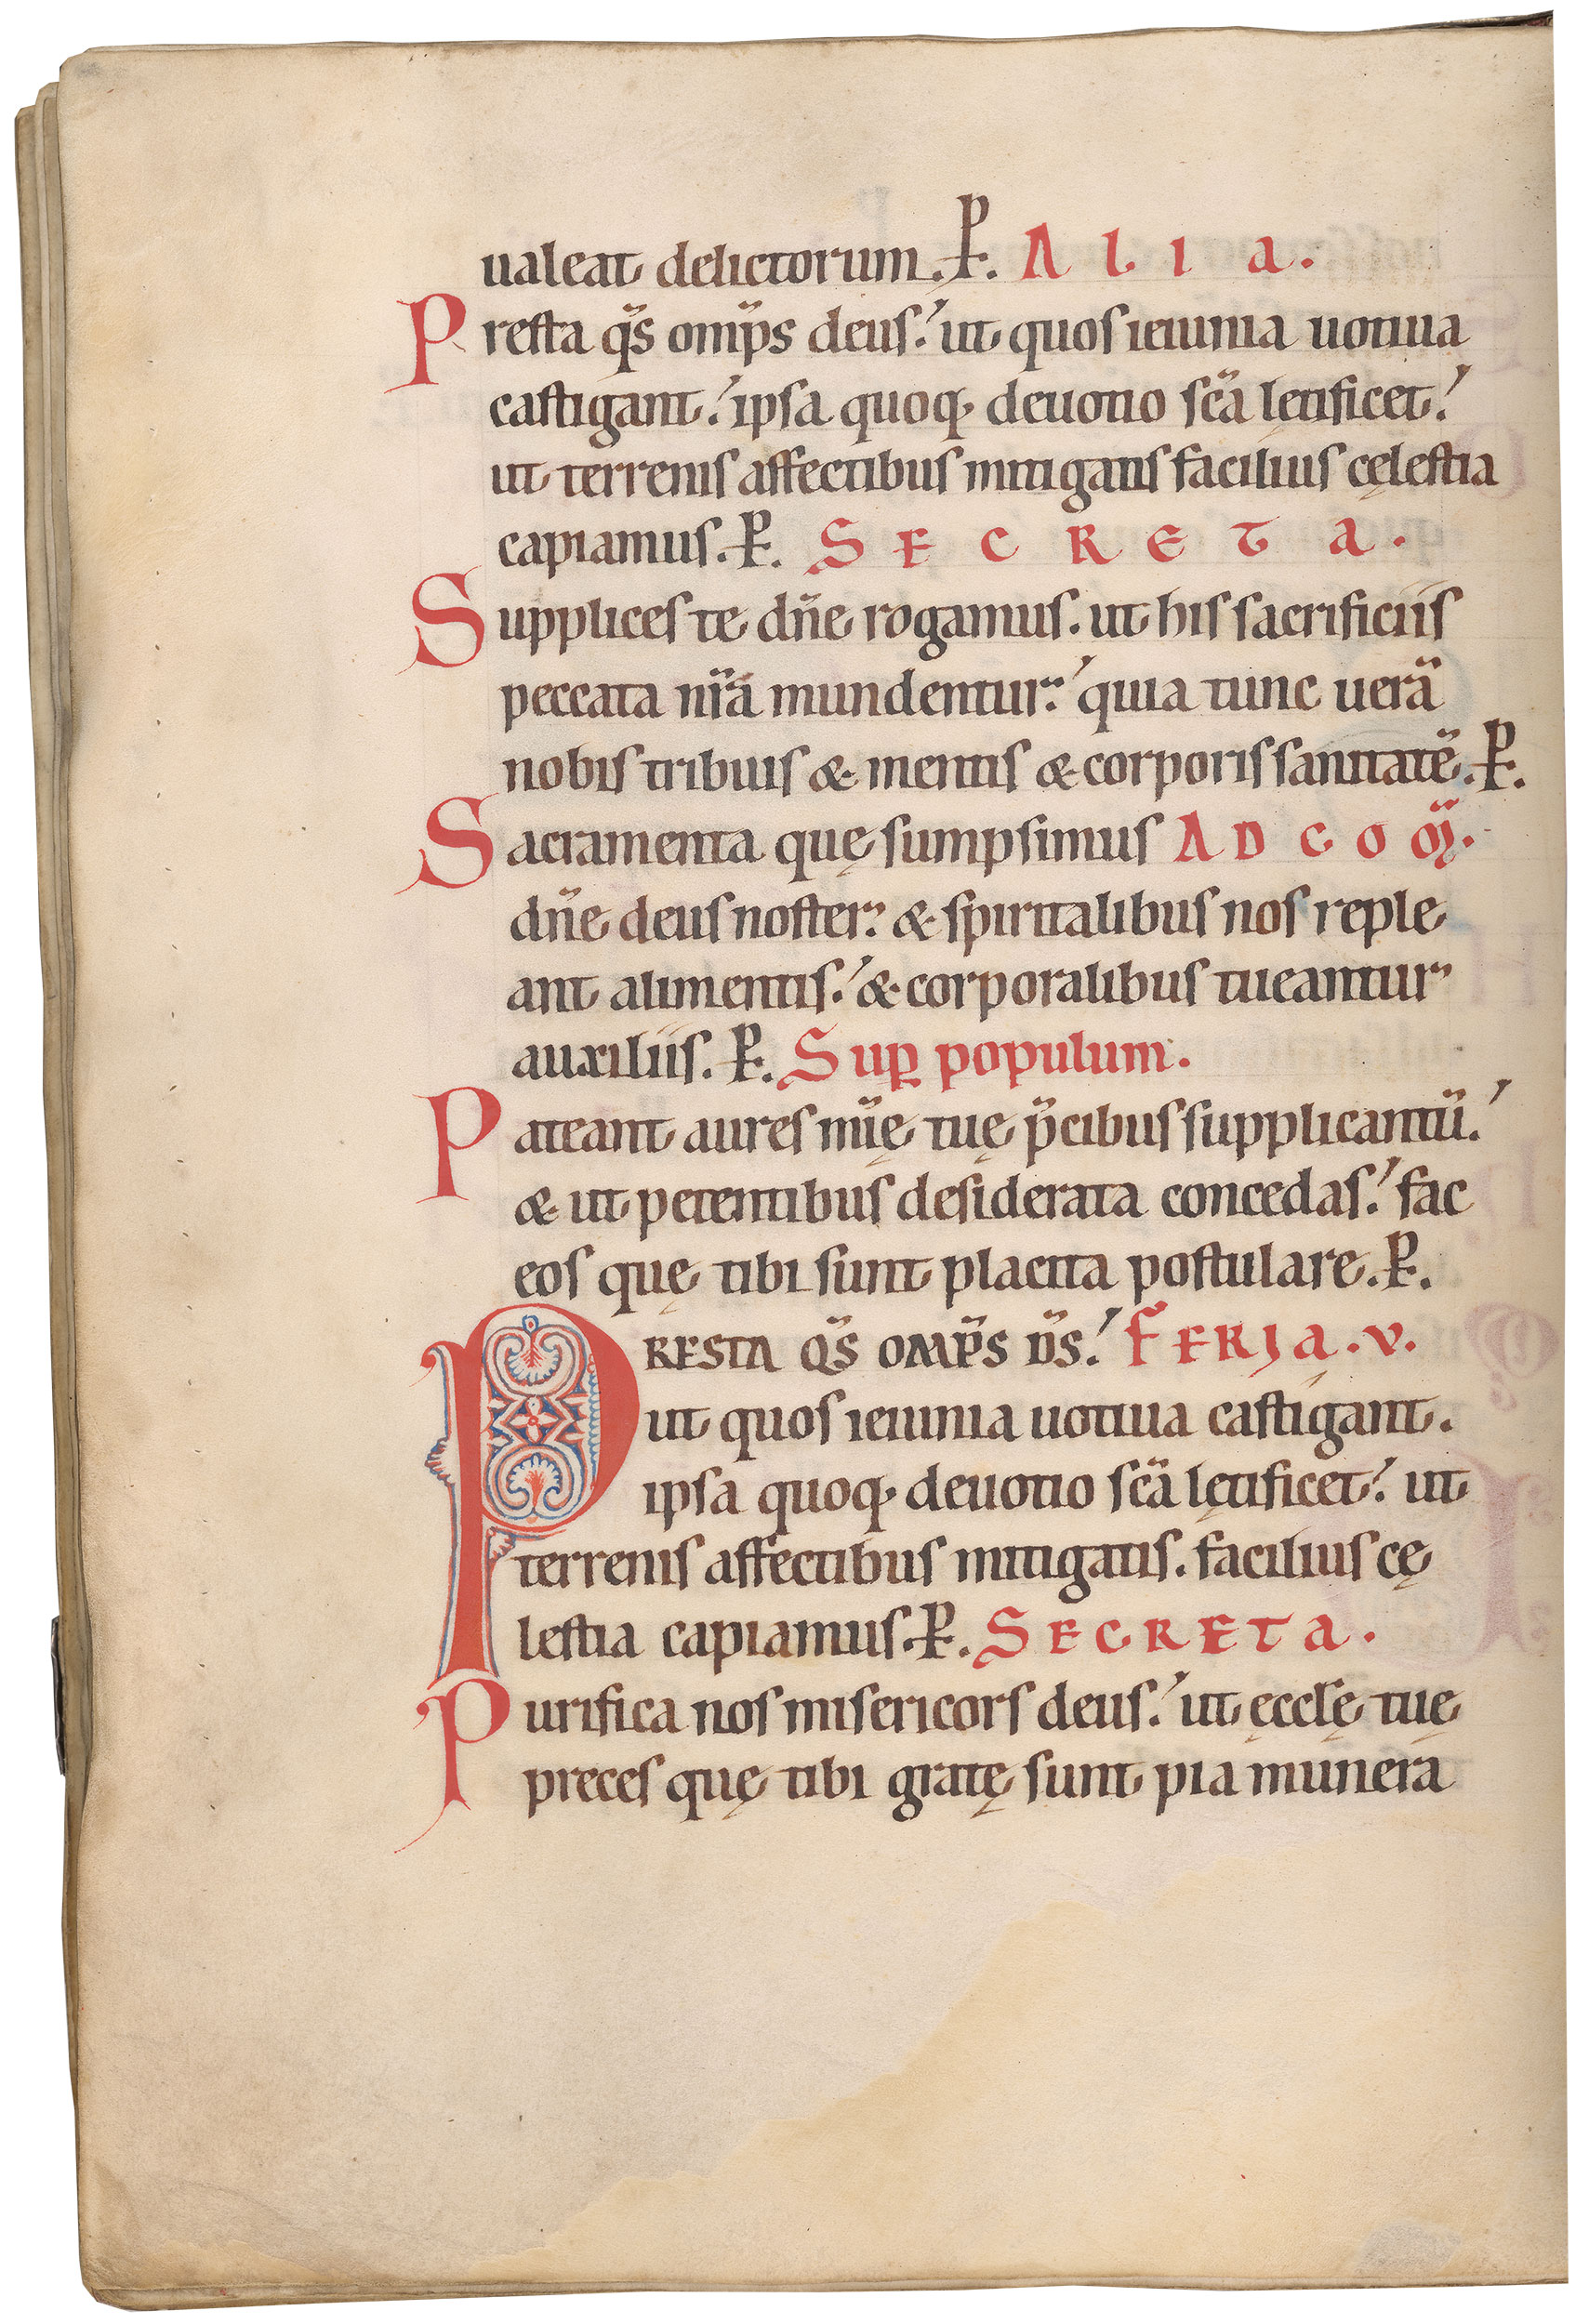 ualeat delictorum. P. ALIA.
Presta q̄s omp̄s deus. ut quos ieiunia uotiua
castigant. ipsa quoq; deuotio sc̄a lętificet.
ut terrenis affectibus mitigatis facilius cęlestia
capiamus. P. SECRETA.
Supplices te dn̄e rogamus. ut his sacrificiis
peccata nr̄a mundentur. quia tunc uerā
nobis tribuis & mentis & corporis sanitatē. P.
Sacramenta quę sumpsimus AD COM̄.
dn̄e deus noster. & spiritalibus nos reple
ant alimentis. & corporalibus tueantur
auxiliis. P. Sup̱ populum.
Pateant aures mīę tuę p̄cibus supplicantū.
& ut petentibus desiderata concedas. fac
eos quę tibi sunt placita postulare. P.
PRESTA Q̄S OMP̄S D̄S. FERIA. V.
ut quos ieiunia uotiua castigant.
ipsa quoq; deuotio sc̄a lętificet. ut
terrenis affectibus mitigatis. facilius cę
lestia capiamus. P. SECRETA.
Purifica nos misericors deus. ut ęccłę tuę
preces quę tibi gratę sunt pia munera